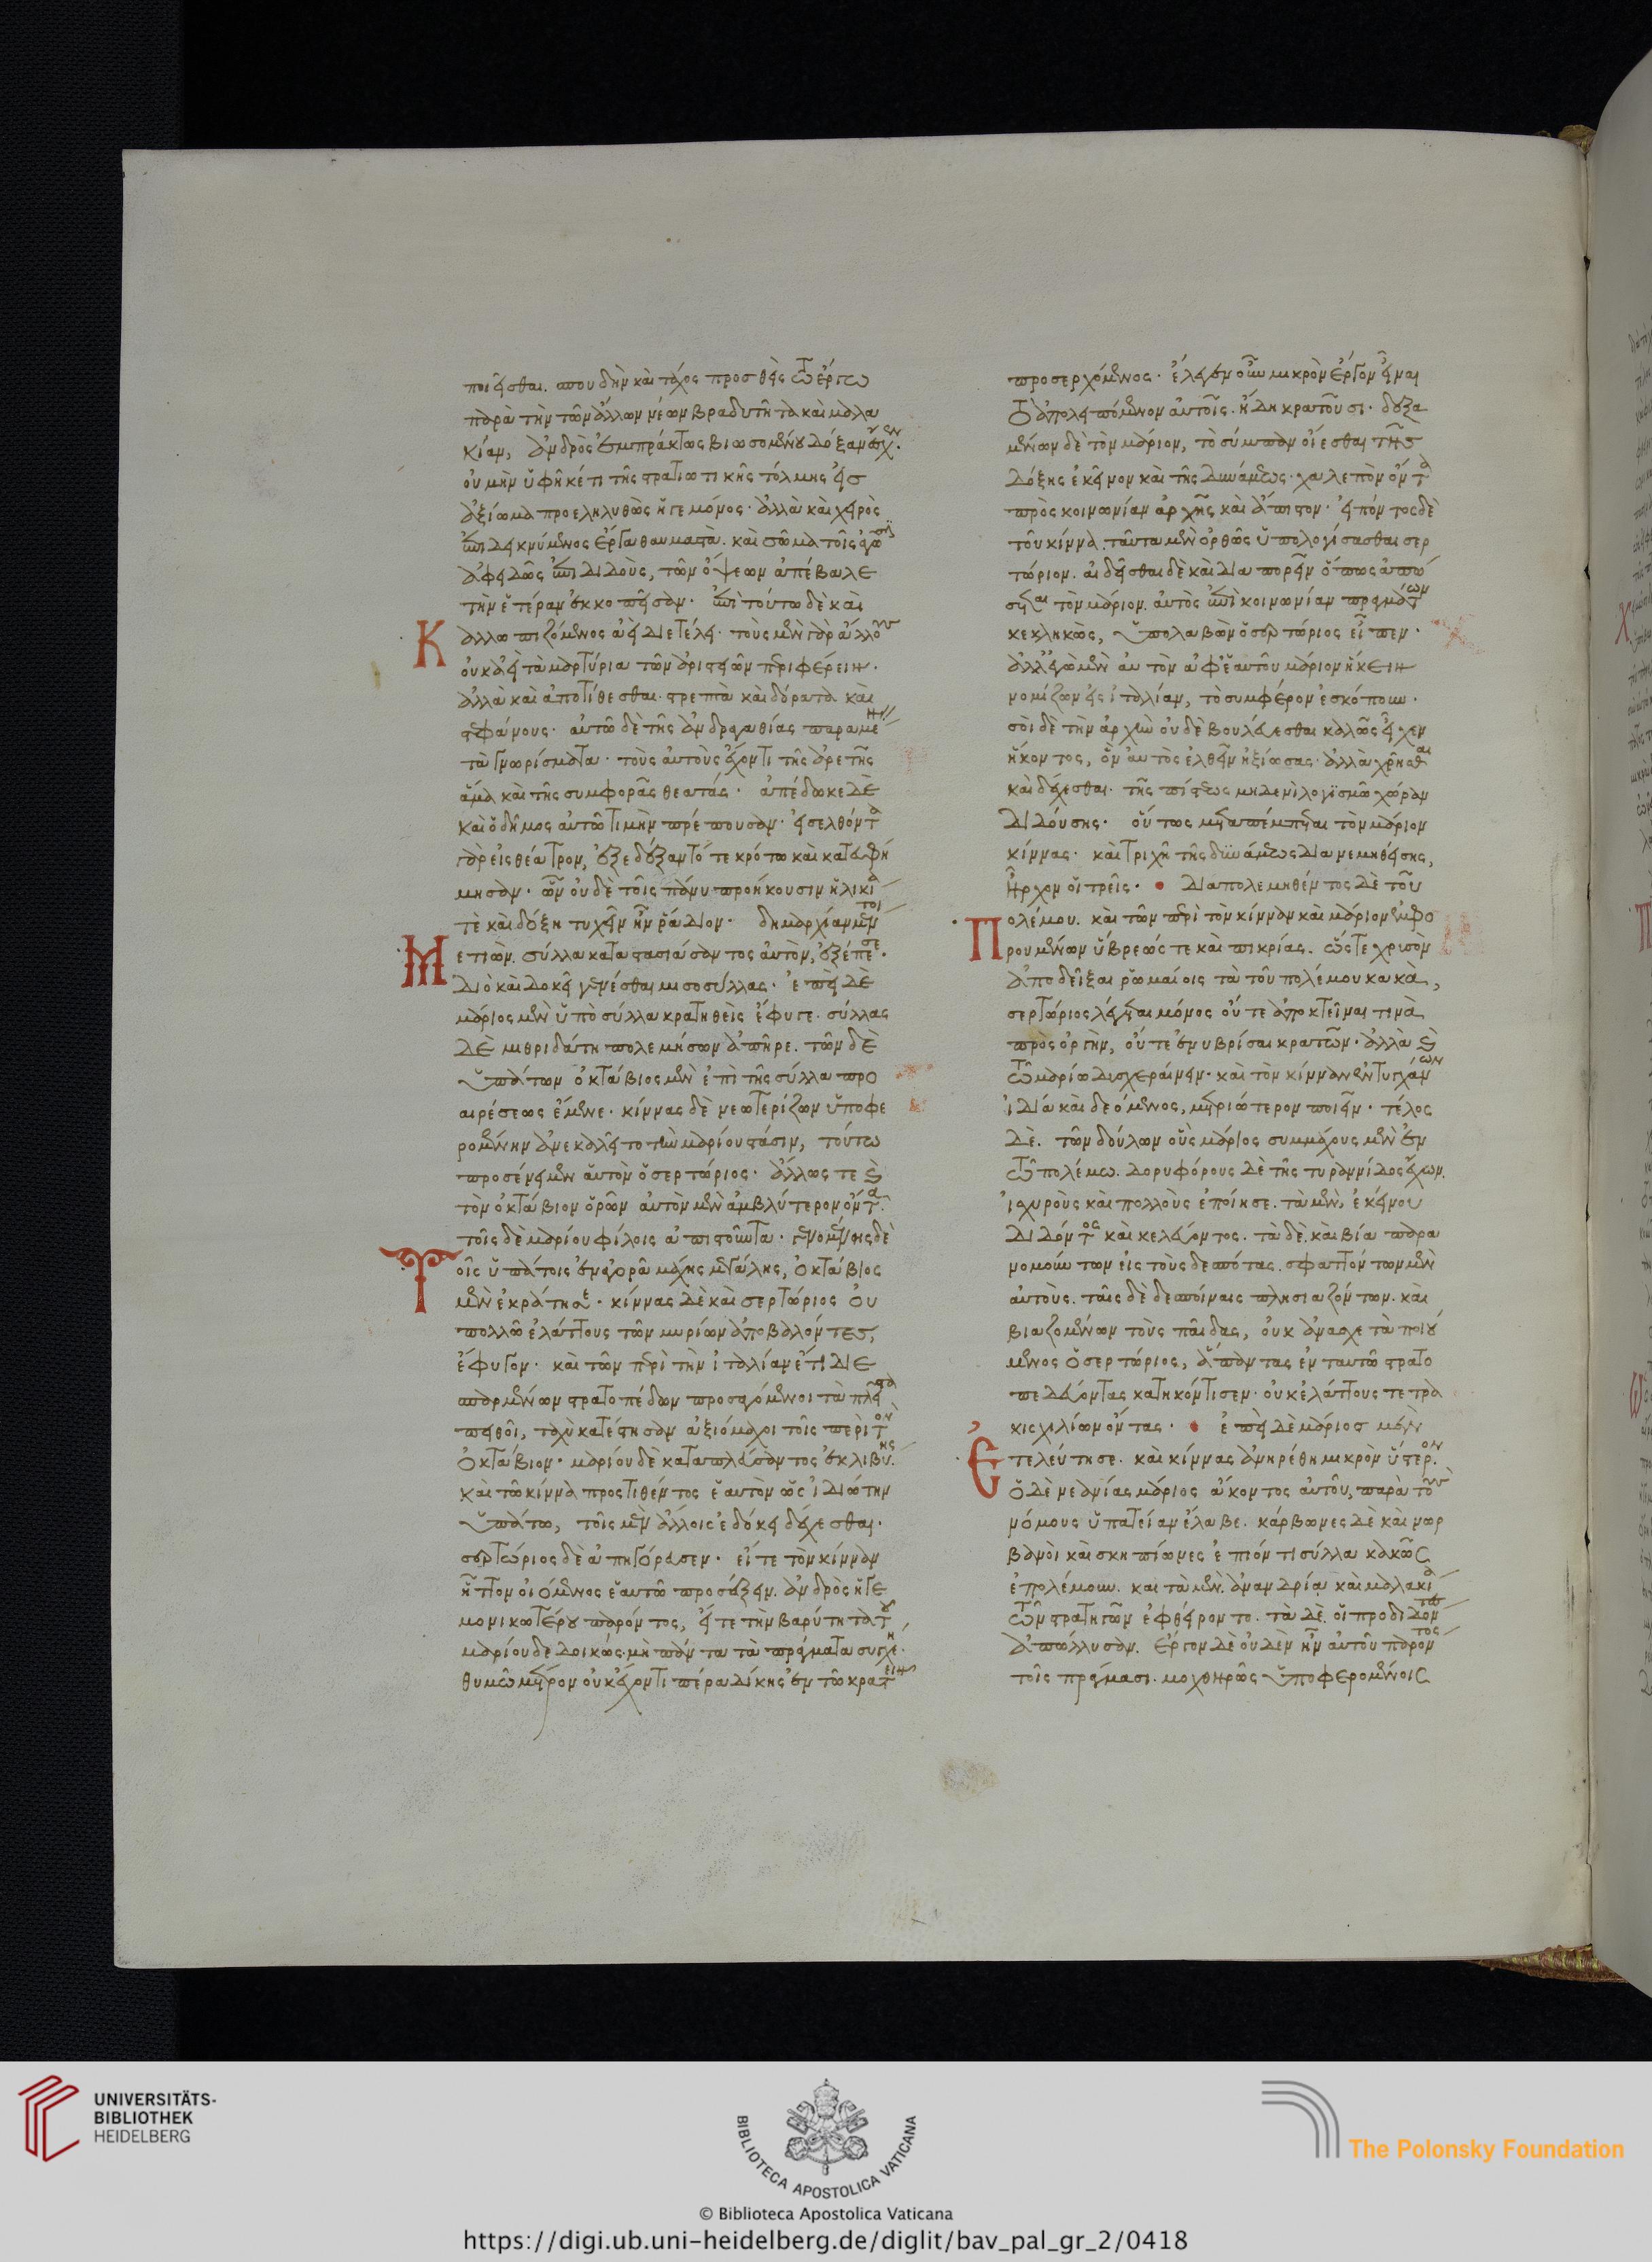 ποιεῖσθαι. σπουδὴν καὶ τάχος προσθεὶς τῶ ἔργω
παρὰ τὴν τῶν ἄλλων νέων βραδυτῆτα καὶ μαλα
κίαν, ἀνδρὸς ἐμπράκτως βιωσομένου δόξαν ἔσχεν.
οὐ μὴν ὑφῆκέ τι τῆς στρατιωτικῆς τόλμης εἰς
ἀξίωμα προεληλυθὼς ἡγεμόνος· ἀλλὰ καὶ χειρὸς
ἐπιδεικνύμενος ἔργα θαυμαστὰ. καὶ σῶμα τοῖς ἀγῶσιν
ἀφειδῶς ἐπιδιδοὺς, τῶν ὄψεων ἀπέβαλε
τὴν ἑτέραν ἐκκοπεῖσαν· ἐπὶ τούτω δὲ καὶ
Καλλωπιζόμενος ἀεὶ διετέλει· τοὺς μὲν γὰρ ἄλλους
οὐκ ἀεὶ τὰ μαρτύρια τῶν ἀριστειῶν περιφέρειν.
ἀλλὰ καὶ ἀποτίθεσθαι. στρεπτὰ καὶ δόρατα καὶ
στεφάνους· αὐτῶ δὲ τῆς ἀνδραγαθίας παραμένειν
τὰ γνωρίσματα· τοὺς αὐτοὺς ἔχοντι τῆς ἀρετῆς
ἅμα καὶ τῆς συμφορᾶς θεατάς· ἀπέδωκε δὲ
καὶ ὁ δῆμος αὐτῶ τιμὴν πρέπουσαν· εἰσελθόντα
γὰρ εἰς θέατρον, ἐξεδέξαντό τε κρότω καὶ κατευφή
μησαν· ὧν οὐδὲ τοῖς πάνυ προήκουσιν ἡλικία
τὲ καὶ δόξη τυχεῖν ἦν ῥάδιον· δημαρχίαν μέντοι
Μετιὼν. σύλλα καταστασιάσαντος αὐτὸν, ἐξέπεσε·
διὸ καὶ δοκεῖ γενέσθαι μισοσύλλας· ἐπεὶ δὲ
μάριος μὲν ὑπὸ σύλλα κρατηθεὶς ἔφυγε. σύλλας
δὲ μιθριδάτη πολεμήσων ἀπῆρε. τῶν δὲ
ὑπάτων ὀκτάβιος μὲν ἐπὶ τῆς σύλλα προ
αιρέσεως ἔμεινε· κίννας δὲ νεωτερίζων ὑποφε
ρομένην ἀνεκαλεῖτο τὴν μαρίου στάσιν, τούτω
προσένειμεν αὑτὸν ὁ σερτώριος· ἄλλως τε καὶ
τὸν ὀκτάβιον ὁρῶν αὐτὸν μὲν ἀμβλύτερον ὄντα.
τοῖς δὲ μαρίου φίλοις ἀπιστοῦντα· γενομένης δὲ
Τοῖς ὑπάτοις ἐν ἀγορᾶ μάχης μεγάλης, ὀκτάβιος
μὲν ἐκράτησε· κίννας δὲ καὶ σερτώριος οὐ
πολλῶ ἐλάττους τῶν μυρίων ἀποβαλόντες,
ἔφυγον· καὶ τῶν περὶ τὴν ἰταλίαν ἔτι διε
σπαρμένων στρατοπέδων προσαγόμενοι τὰ πλεῖστα
πειθοῖ, ταχὺ κατέστησαν ἀξιόμαχοι τοῖς περὶ τὸν
ὀκτάβιον· μαρίου δὲ καταπλεύσαντος ἐκ λιβύης.
καὶ τῶ κίννα προστιθέντος ἑαυτὸν ὡς ἰδιώτην
ὑπάτω, τοῖς μὲν ἄλλοις ἐδόκει δέχεσθαι.
σερτώριος δὲ ἀπηγόρευσεν· εἴτε τὸν κίνναν
ἧττον οἰόμενος ἑαυτῶ προσέξειν. ἀνδρὸς ἡγε
μονικωτέρου παρόντος, εἴτε τὴν βαρύτητα τοῦ
μαρίου δεδοικὼς. μὴ πάντα τὰ πράγματα συγχέη.
θυμῶ μέτρον οὐκ ἔχοντι πέρα δίκης ἐν τῶ κρατεῖν
προσερχόμενος· ἔλεγεν οὖν μικρὸν ἔργον εἶναι
τὸ ἀπολειπόμενον αὐτοῖς. ἤδη κρατοῦσι· δεξα
μένων δὲ τὸν μάριον, τὸ σύμπαν οἴσεσθαι τῆς
δόξης ἐκεῖνον καὶ τῆς δυνάμεως· χαλεπὸν ὄντα
πρὸς κοινωνίαν ἀρχῆς καὶ ἄπιστον· εἰπόντος δὲ
τοῦ κίννα. ταῦτα μὲν ὀρθῶς ὑπολογίσασθαι σερ
τώριον. αἰδεῖσθαι δὲ καὶ διαπορεῖν ὅπως ἀπώ
σεται τὸν μάριον. αὐτὸς ἐπὶ κοινωνίαν πραγμάτων
κεκληκὼς, ὑπολαβὼν ὁ σερτώριος εἶπεν·
ἀλλ' ἐγὼ μὲν αὐτὸν ἀφ' ἑαυτοῦ μάριον ἥκειν
νομίζων εἰς ἰταλίαν, τὸ συμφέρον ἐσκόπουν.
σοὶ δὲ τὴν ἀρχὴν οὐδὲ βουλεύεσθαι καλῶς εἶχεν
ἥκοντος, ὃν αὐτὸς ἐλθεῖν ἠξίωσας· ἀλλὰ χρῆσθαι
καὶ δέχεσθαι. τῆς πίστεως μηδενὶ λογισμῶ χώραν
διδούσης· οὕτως μεταπέμπεται τὸν μάριον
κίννας· καὶ τριχῆ τῆς δυνάμεως διανεμηθείσης,
ἦρχον οἱ τρεῖς· διαπολεμηθέντος δὲ τοῦ
Πολέμου. καὶ τῶν περὶ τὸν κίνναν καὶ μάριον ἐμφο
ρουμένων ὕβρεώς τε καὶ πικρίας. ὥστε χρυσὸν
ἀποδεῖξαι ῥωμαίοις τὰ τοῦ πολέμου κακὰ,
σερτώριος λέγεται μόνος οὔτε ἀποκτεῖναι τινὰ
πρὸς ὀργὴν, οὔτε ἐνυβρίσαι κρατῶν· ἀλλὰ καὶ
τῶ μαρίω δυσχεραίνειν· καὶ τὸν κίνναν ἐντυγχάνων
ἰδία καὶ δεόμενος, μετριώτερον ποιεῖν· τέλος
δὲ. τῶν δούλων οὓς μάριος συμμάχους μὲν ἐν
τῶ πολέμω. δορυφόρους δὲ τῆς τυραννίδος ἔχων.
ἰσχυροὺς καὶ πολλοὺς ἐποίησε. τὰ μὲν, ἐκείνου
διδόντος καὶ κελεύοντος. τὰ δὲ, καὶ βία παρα
νομούντων εἰς τοὺς δεσπότας. σφαττόντων μὲν
αὐτοὺς. ταῖς δὲ δεσποίναις πλησιαζόντων. καὶ
βιαζομένων τοὺς παῖδας, οὐκ ἀνασχετὰ ποιού
μενος ὁ σερτώριος, ἅπαντας ἐν ταυτῶ στρατο
πεδεύοντας κατηκόντισεν· οὐκ ἐλάττους τετρα
κισχιλίων ὄντας· ἐπεὶ δὲ μάριος μὲν
Ἐτελεύτησε. καὶ κίννας ἀνηρέθη μικρὸν ὕστερον.
ὁ δὲ νεανίας μάριος ἄκοντος αὐτοῦ, παρὰ τοὺς
νόμους ὑπατείαν ἔλαβε. κάρβωνες δὲ καὶ νωρ
βανοὶ καὶ σκηπίωνες ἐπιόντι σύλλα κακῶς
ἐπολέμουν. καὶ τὰ μὲν. ἀνανδρία καὶ μαλακία
τῶν στρατηγῶν ἐφθείροντο. τὰ δὲ. οἱ προδιδόντες
ἀπώλλυσαν. ἔργον δὲ οὐδὲν ἦν αὐτοῦ παρόντος
τοῖς πράγμασι. μοχθηρῶς ὑποφερομένοις
UNIVERSITÄTS-
BIBLIOTHEK
HEIDELBERG
BIBLIOTECA APOSTOLICA VATICANA
The Polonsky Foundation
© Biblioteca Apostolica Vaticana
https://digi.ub.uni-heidelberg.de/diglit/bav_pal_gr_2/0418